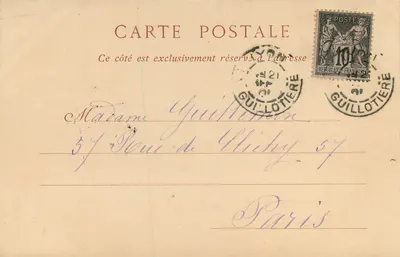 CARTE POSTALE
Ce côté est exclusivement réservé à l'adresse
POSTE
10
LYON
GUILLOTIÈRE
GUILLOTIÈRE
Madame
57 Rue de Clichy 57
Paris